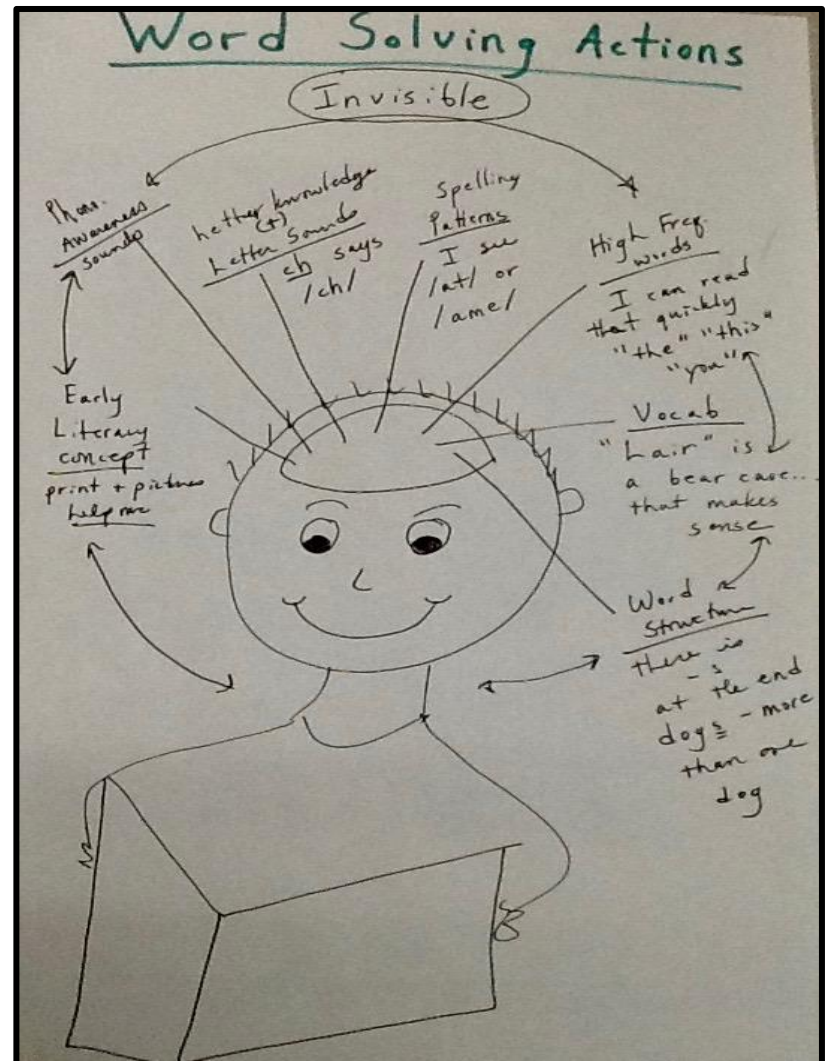 Word Solving Actions
Invisible
Phon.
Awareness
sounds
Letter knowledge
(+)
Letter Sounds
ch says
/ch/
Spelling
Patterns
I see
/at/ or
/ame/
High Freq.
words
I can read
that quickly
"the" "this"
"you"
Early
Literacy
concept
print + pictures
help me
Vocab
"Lair" is
a bear cave...
that makes
sense
Word
Structure
there is
-s
at the end
dogs - more
than one
dog